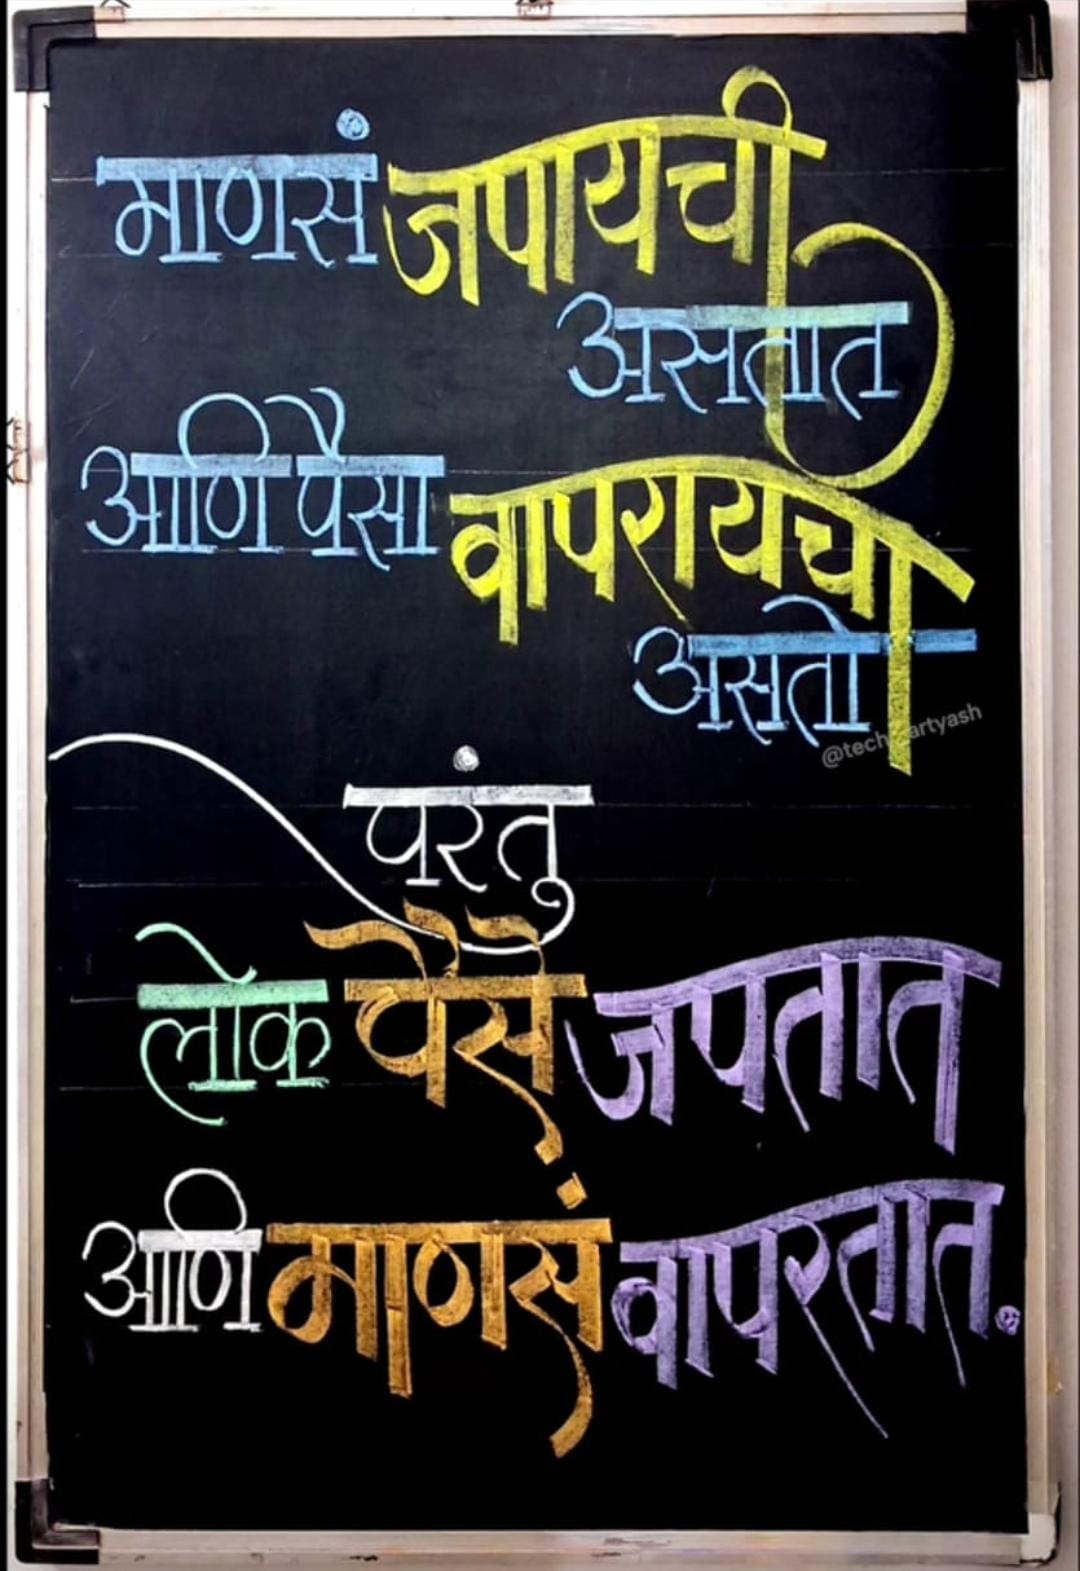 माणसं जपायची
असतात
आणि पैसा वापरायचा
असतो
परंतु
लोक पैसे जपतात
आणि माणसं वापरतात.